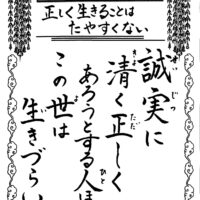 正しく生きることは
たやすくない
誠実に
清く正しく
あろうとする人ほ
この世は
生きづらい